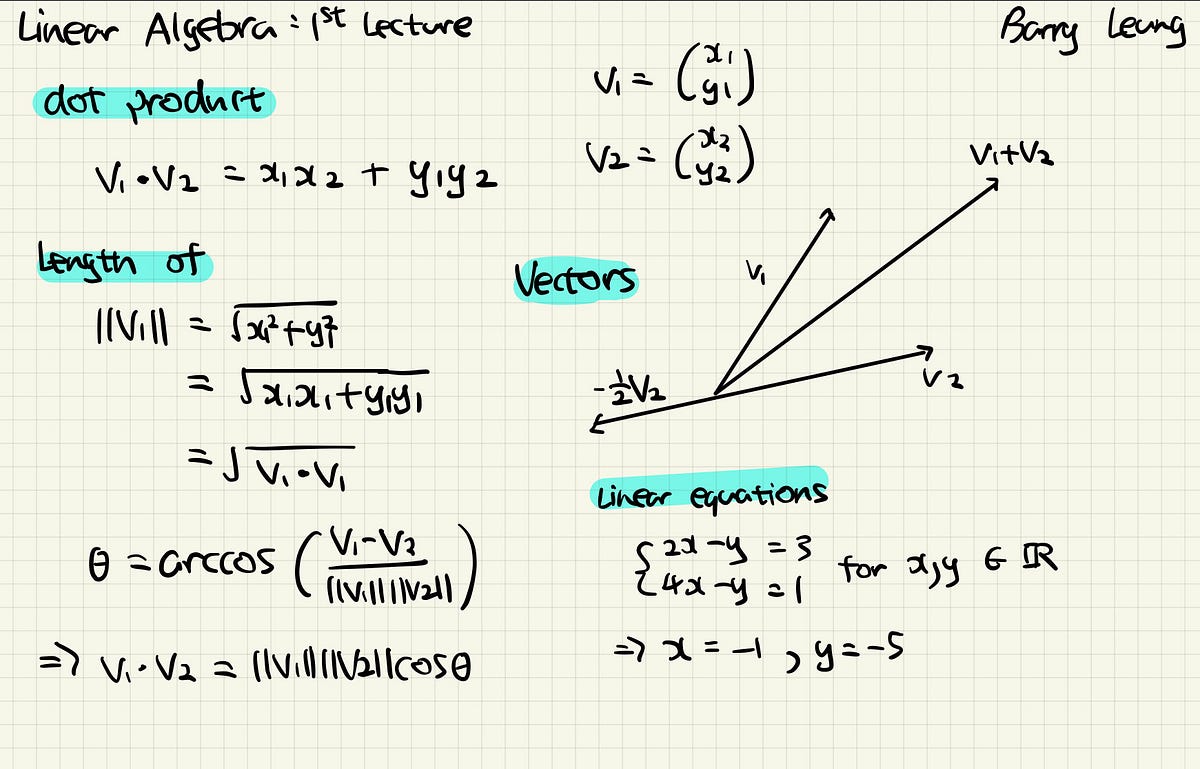 Linear Algebra : 1st Lecture
Barry Leung
dot product
V₁ • V₂ = x₁x₂ + y₁y₂
V₁ = (x₁ y₁)
V₂ = (x₂ y₂)
Length of
||V₁|| = √(x₁²+y₁²)
= √(x₁x₁+y₁y₁)
= √(V₁•V₁)
θ = arccos (V₁-V₂ / ||V₁|| ||V₂||)
=> V₁ · V₂ = ||V₁|| ||V₂|| cosθ
Vectors
V₁+V₂
V₁
V₂
-½V₂
Linear equations
{ 2x-y = 3
4x-y = 1 for x,y ∈ ℝ
=> x = -1 , y = -5